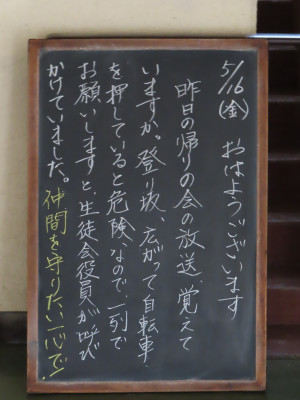 5/16(金) おはようございます
昨日の帰りの会の放送、覚えて
いますか。登り坂、広がって自転車
を押していると危険なので、一列で
お願いしますと、生徒会役員が呼び
かけていました。仲間を守りたい一心で!